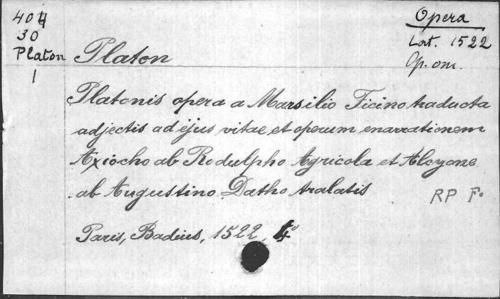 404
30
Platon
1
Platon
Opera
Lat. 1522
Op. om.
Platonis opera a Marsilio Ficino traducta
adjectis ad ejus vitae et operum enarrationem
Axiocho ab Rodulpho Agricola et Alcyone
ab Augustino Datho tralatis
RP F.
Paris, Badius, 1522, 4°